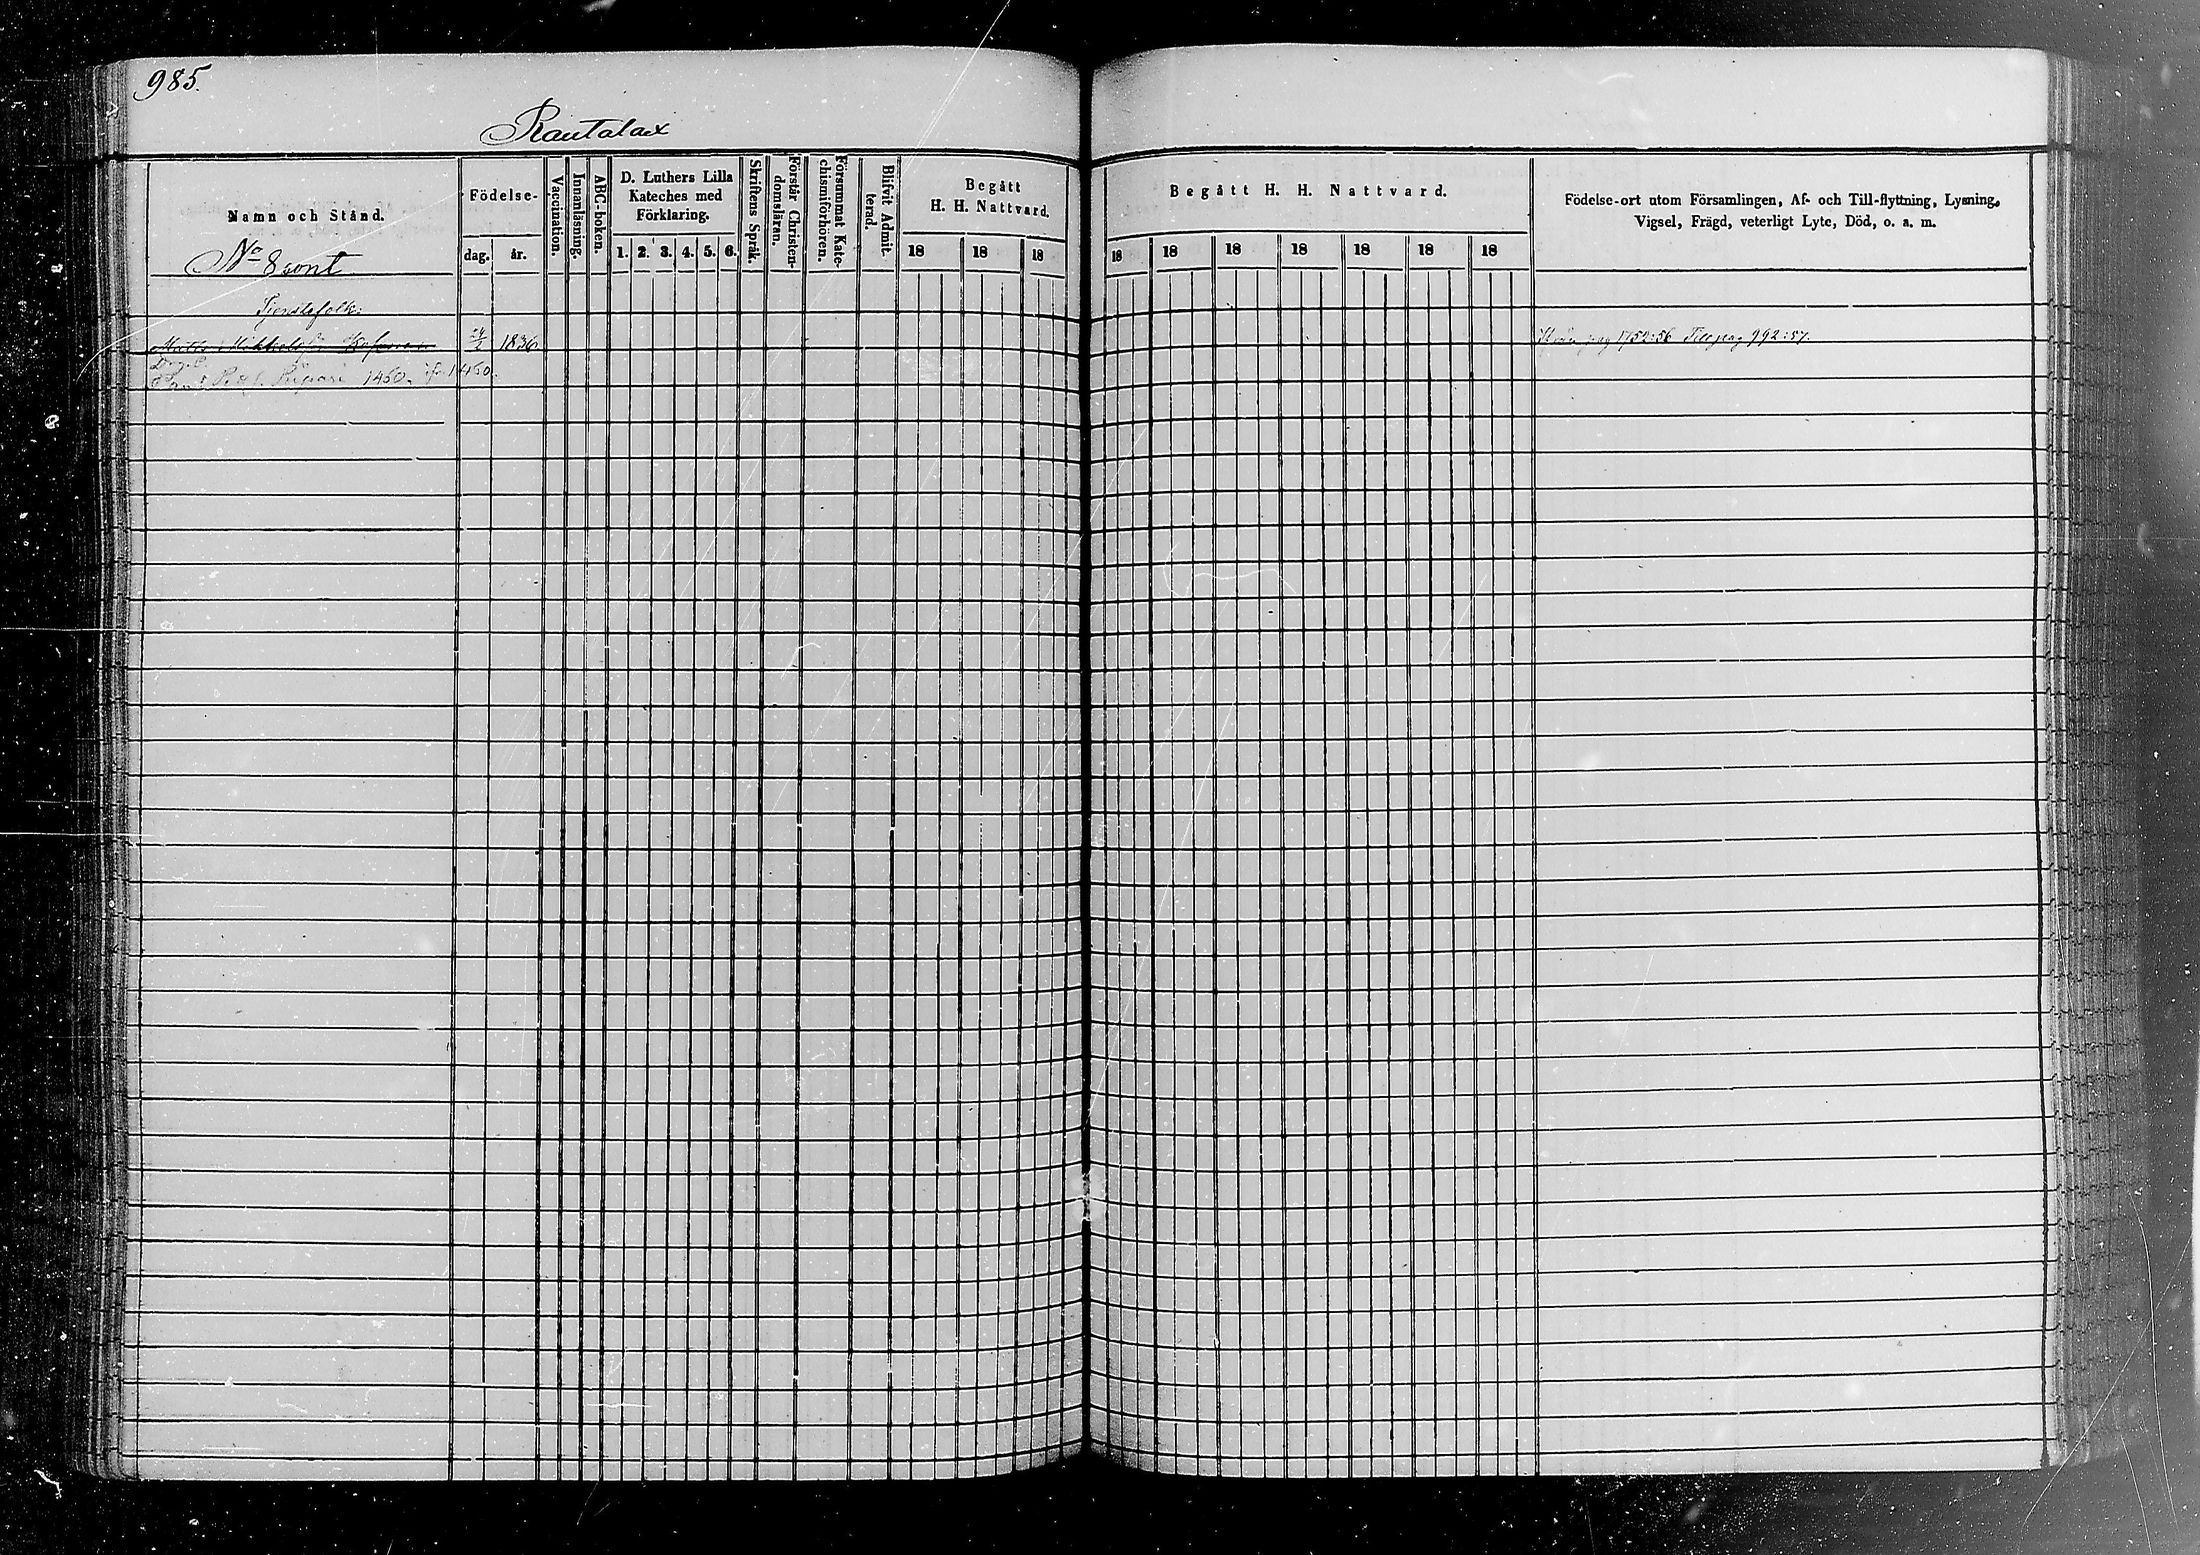 985.
Rautalax
Namn och Stånd.
No 8 cont
Födelse-
dag. år.
Vaccination.
Innanläsning.
ABC-boken.
D. Luthers Lilla
Kateches med
Förklaring.
1. 2. 3. 4. 5. 6.
Skriftens Språk.
Förstår Christen-
domsläran.
Försummat Kate-
chismiförhören.
Blifvit Admit-
terad.
Begått
H. H. Nattvard.
18 18 18
Begått H. H. Nattvard.
18 18 18 18 18 18 18
Födelse-ort utom Församlingen, Af- och Till-flyttning, Lysning,
Vigsel, Frägd, veterligt Lyte, Död, o. a. m.
Tjenstefolk:
Matts Mikkelsson 1836 pag 1752:56 Till pag 992:57.
1460. 1460.